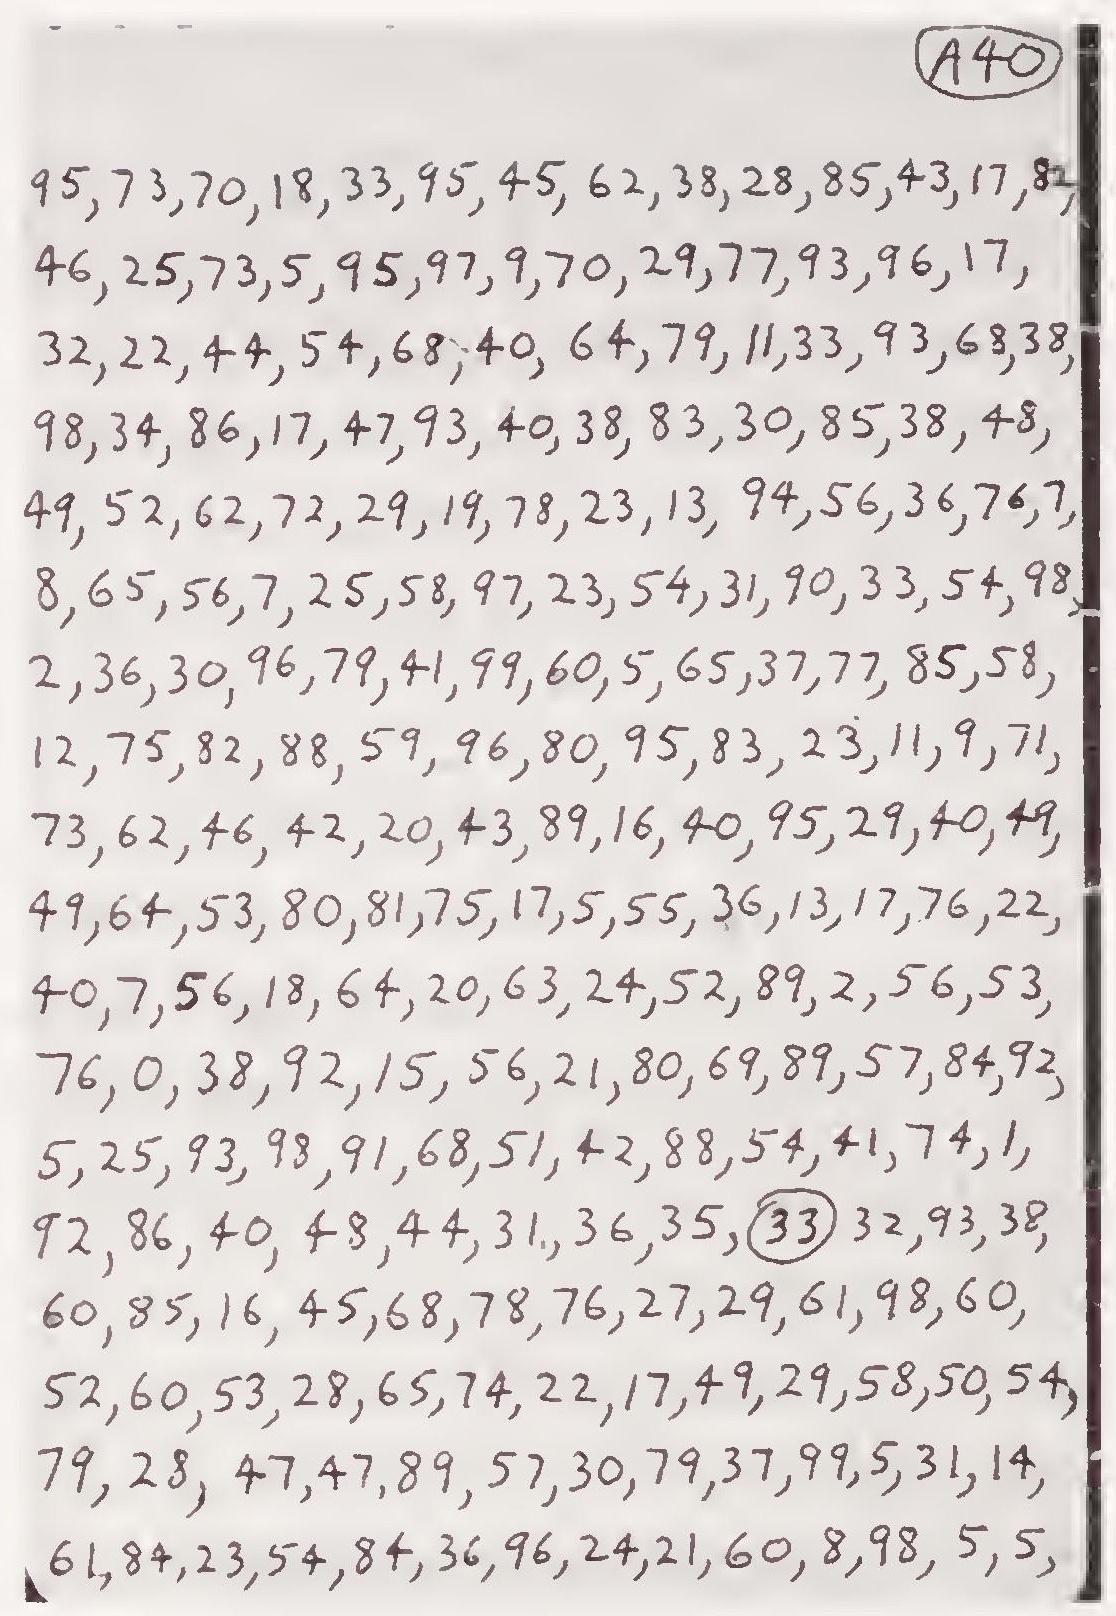 A40
95,73,70,18,33,95,45,62,38,28,85,43,17,82,
46,25,73,5,95,97,9,70,29,77,93,96,17,
32,22,44,54,68,40,64,79,11,33,93,68,38,
98,34,86,17,47,93,40,38,83,30,85,38,48,
49,52,62,72,29,19,78,23,13,94,56,36,76,7,
8,65,56,7,25,58,97,23,54,31,90,33,54,98,
2,36,30,96,79,41,99,60,5,65,37,77,85,58,
12,75,82,88,59,96,80,95,83,23,11,9,71,
73,62,46,42,20,43,89,16,40,95,29,40,49,
49,64,53,80,81,75,17,5,55,36,13,17,76,22,
40,7,56,18,64,20,63,24,52,89,2,56,53,
76,0,38,92,15,56,21,80,69,89,57,84,92,
5,25,93,98,91,68,51,42,88,54,41,74,1,
92,86,40,48,44,31,36,35,33 32,93,38,
60,85,16,45,68,78,76,27,29,61,98,60,
52,60,53,28,65,74,22,17,49,29,58,50,54,
79,28,47,47,89,57,30,79,37,99,5,31,14,
61,84,23,54,84,36,96,24,21,60,8,98,5,5,